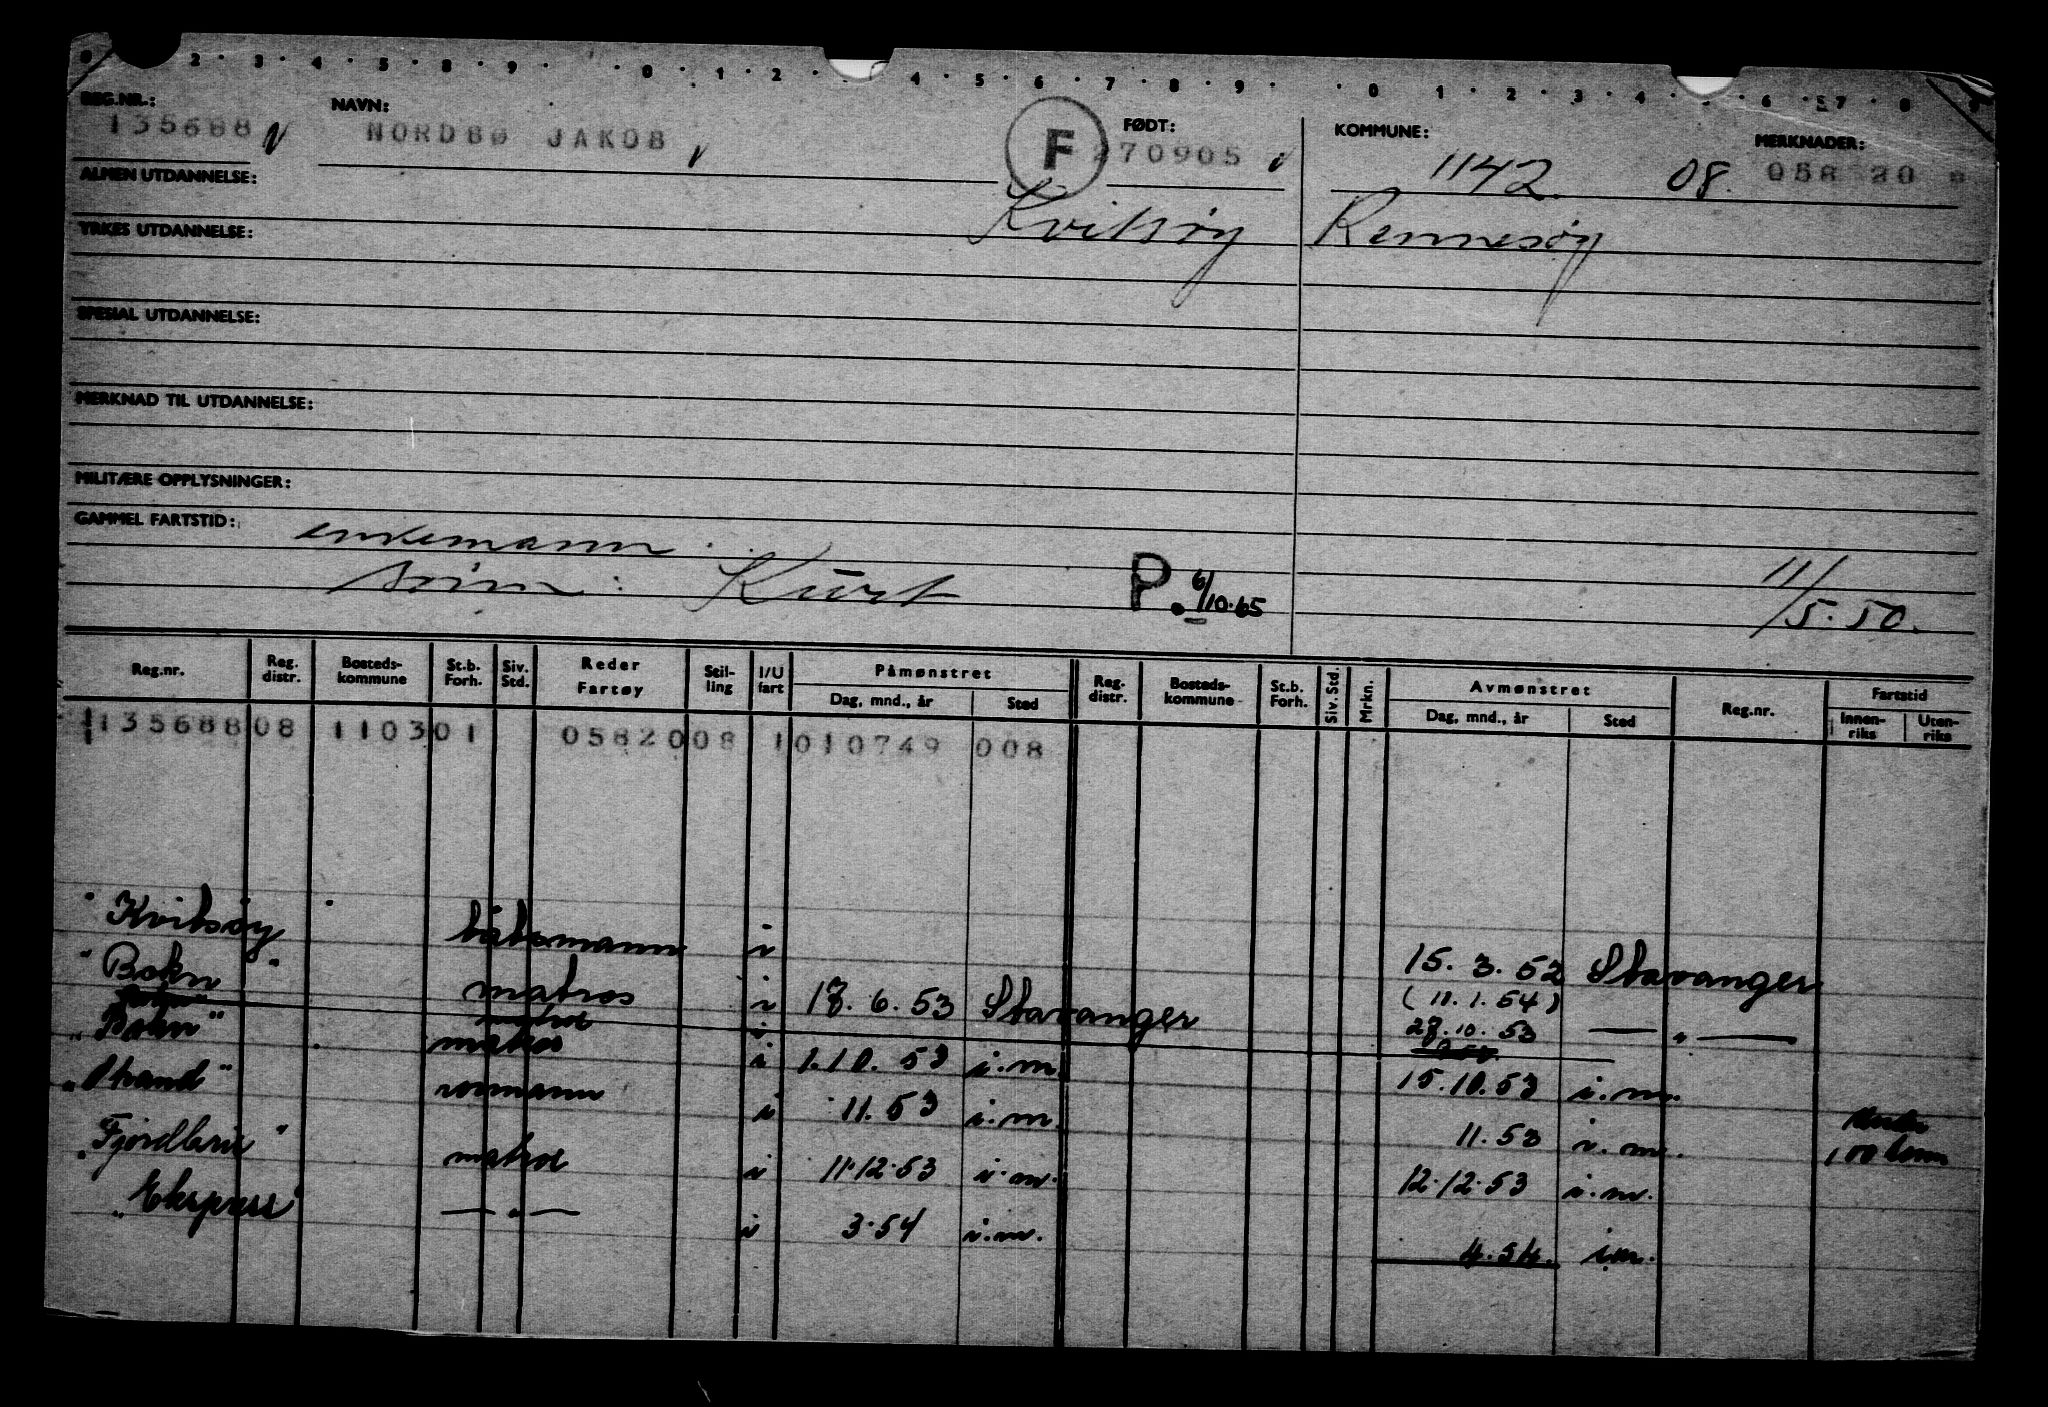 0 2 · 3 · 4 · 5 · 8 · 9 · · 0 · 1 · 2 · 4 · 5 · 6 · 7 · 8 · 9 · · 0 · 1 · 2 · 3 · 4 · · 6 · 7 · 8 9
REG.NR.: NAVN: FØDT: KOMMUNE: MERKNADER:
135688 NORDBØ JAKOB F 270905 1142. 08. 058 20
ALMEN UTDANNELSE:
Kvitsøy Rennesøy
YRKES UTDANNELSE:
SPESIAL UTDANNELSE:
MERKNAD TIL UTDANNELSE:
MILITÆRE OPPLYSNINGER:
GAMMEL FARTSTID:
enkemann.
sønn: Kurt P. 6/10.65 11/5.50.
Reg.nr. Reg. distr. Bosteds- kommune St.b. Forh. Siv. Std. Reder Fartøy Stil- ling I/U fart Påmønstret Dag, mnd., år Sted Reg. distr. Bosteds- kommune St.b. Forh. Siv. Std. Mrkn. Avmønstret Dag, mnd., år Sted Reg.nr. Fartstid Innen- riks Uten- riks
135688 08 1103 01 058200 8 1 010749 008
"Kvitsøy" båtsmann i 15.3.52 Stavanger
"Bokn" matros i 18.6.53 Stavanger (11.1.54)
matros i 28.10.53 — " —
"Bokn" matros i 1.10.53 i.m. 15.10.53 i.m.
"Strand" rormann i 11.53 i.m. 11.53 i.m. under 100 tonn
"Fjordbris" matros i 11.12.53 i.m. 12.12.53 i.m.
"Ekspress" — " — i 3.54 i.m. 4.54. i.m.